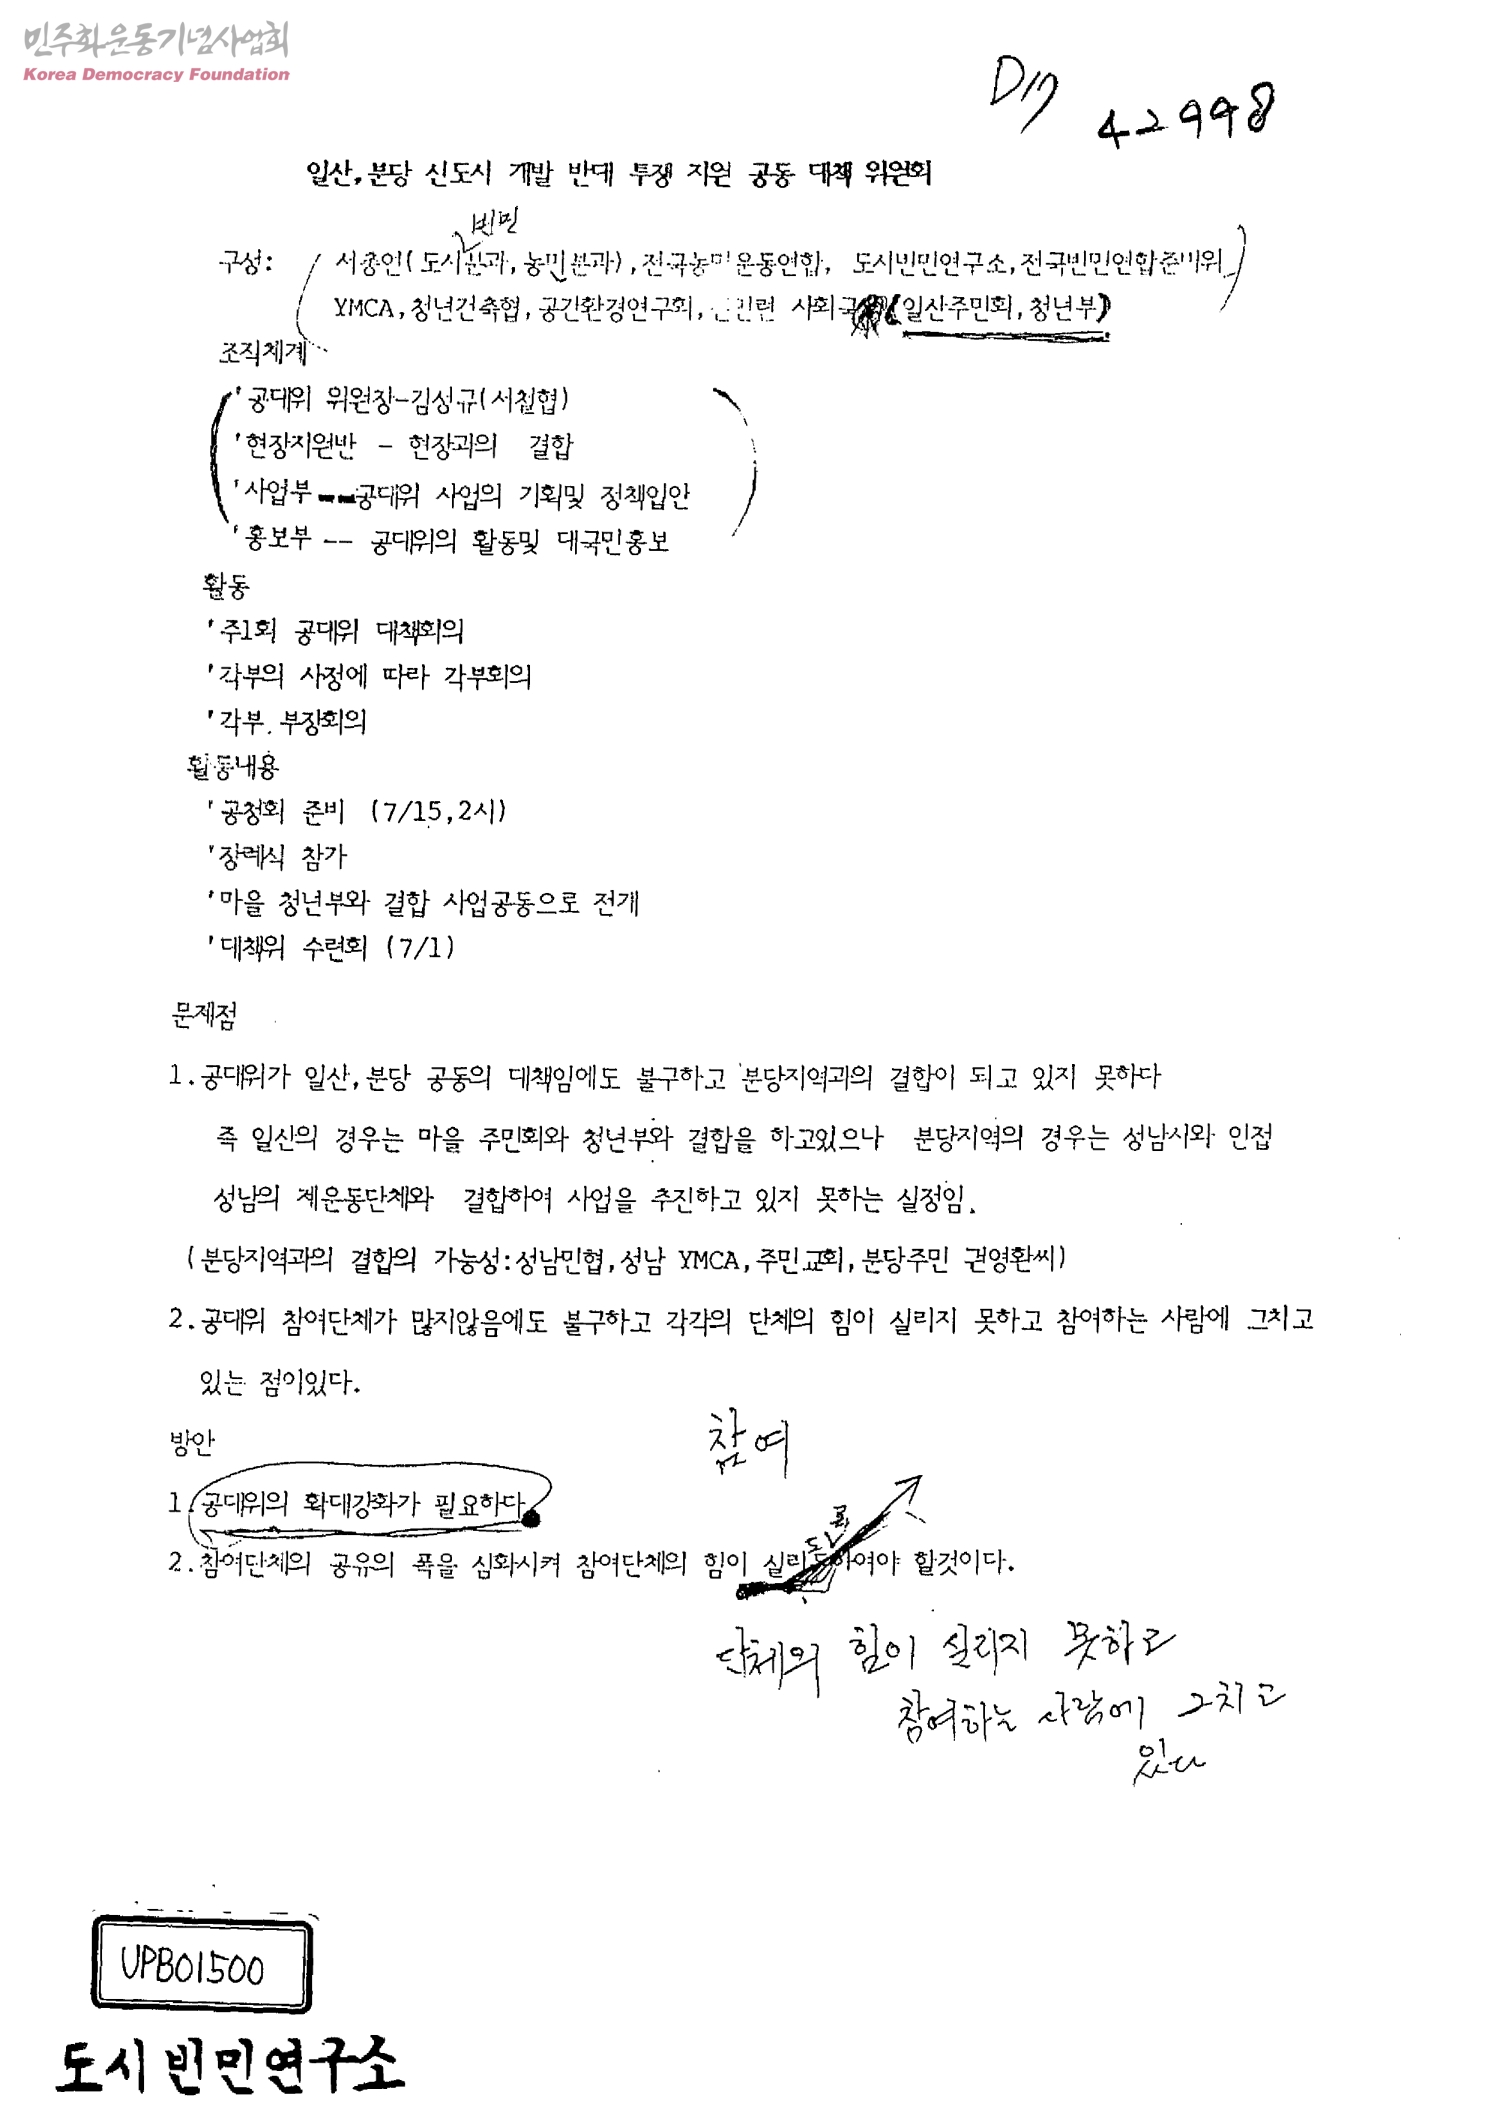 민주화운동기념사업회
Korea Democracy Foundation
42998
일산,분당 신도시 개발 반대 투쟁 지원 공동 대책 위원회
빈민
구성: 서총인(도시분과,농민분과),전국농민운동연합, 도시빈민연구소,전국빈민연합준비위
YMCA,청년건축협,공간환경연구회, 사회국 (일산주민회,청년부)
조직체계
'공대위 위원장-김성규(서철협)
'현장지원반 - 현장과의 결합
'사업부 --공대위 사업의 기획및 정책입안
'홍보부 -- 공대위의 활동및 대국민홍보
활동
'주1회 공대위 대책회의
'각부의 사정에 따라 각부회의
'각부. 부장회의
활동내용
'공청회 준비 (7/15,2시)
'장례식 참가
'마을 청년부와 결합 사업공동으로 전개
'대책위 수련회 (7/1)
문제점
1.공대위가 일산,분당 공동의 대책임에도 불구하고 분당지역과의 결합이 되고 있지 못하다
즉 일산의 경우는 마을 주민회와 청년부와 결합을 하고있으나 분당지역의 경우는 성남시와 인접
성남의 제운동단체와 결합하여 사업을 추진하고 있지 못하는 실정임.
(분당지역과의 결합의 가능성:성남민협,성남 YMCA,주민교회,분당주민 권영환씨)
2.공대위 참여단체가 많지않음에도 불구하고 각각의 단체의 힘이 실리지 못하고 참여하는 사람에 그치고
있는 점이있다.
방안
참여
1.공대위의 확대강화가 필요하다
도록
2.참여단체의 공유의 폭을 심화시켜 참여단체의 힘이 실리 하여야 할것이다.
단체의 힘이 실리지 못하고
참여하는 사람에 그치고
있다
UPB01500
도시빈민연구소